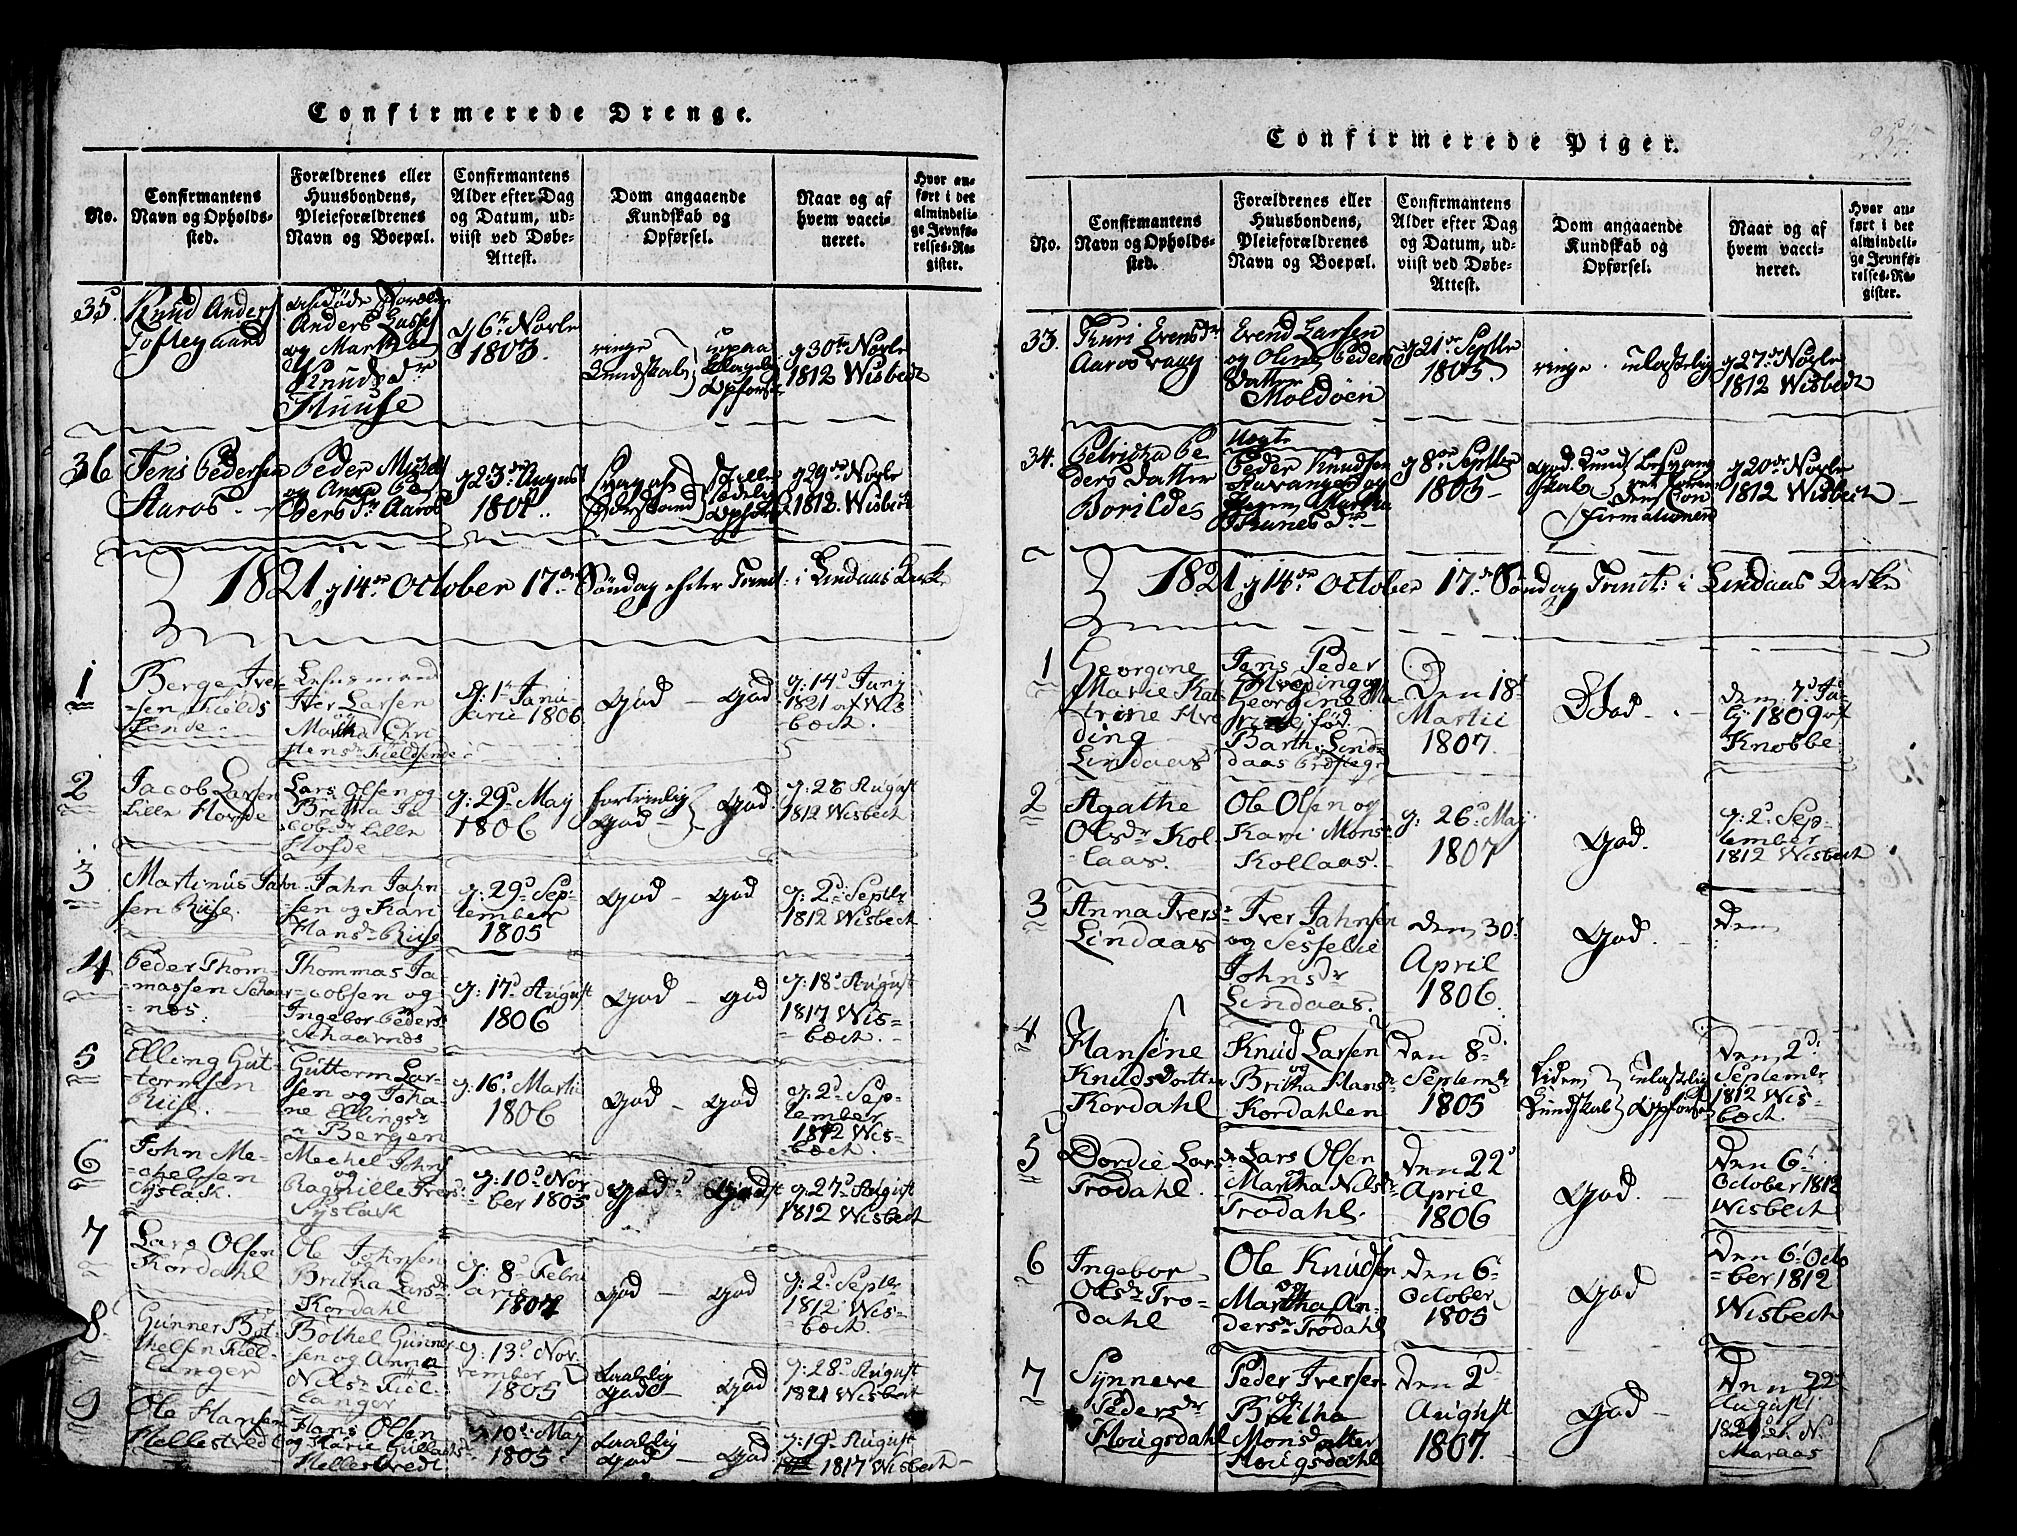 Confirmerede Drenge.
No.
Confirmantens
Navn og Opholds-
sted.
Forældrenes eller
Huusbondens,
Pleieforældrenes
Navn og Boepæl.
Confirmantens
Alder efter Dag
og Datum, ud-
viist ved Døbe-
Attest.
Dom angaaende
Kundskab og
Opførsel.
Naar og af
hvem vacci-
neret.
Hvor an-
ført i det
almindeli-
ge Jevnfø-
relses-Re-
gister.
35.
Knud Anders
Toftegaard
Anders Lasse
og Martha
Knudsdr
1803.
ringe
Kundskab
1812 Wisbech
36
Jens Pedersen
Aaros
Peder
og Anna Pe
dersdr Aaros
g 23de August
g 29de Novbr
1812. Wisbech
1821 g 14de October 17de Søndag efter Trinit: i Lindaas Kirke
1
Berge Iver
-sen Fields
-ende.
Lensmand
Iver Larsen
og
Martha Chri
stensdr Fieldsende
g: 1t Janu
arie 1806
God - God
g: 14d Juny
1821 af Wis
bæch.
2
Jacob Larsen
Lille Hopde
Lars Olsen og
Britha Ja
cobsdr Lille
g: 29d May
1806
God
g: 28 August
1812 Wisbech
3
Martinus Jahn
sen Riise.
Jahn Jahn
-sen og Kari
Hansdr Riise
g: 29d Sep-
tember
1805
God - God
g: 2d Septbr
1812 Wisbech
4
Peder Thom-
massen Schaar
-nes.
Thommas Ja
-cobsen og
Ingebor Peders
Schaarnes
g: 17d August
1806
God - God
g: 18d August
1817 Wis-
bæch.
5
Elling Gut-
tormsen
Riise.
Guttorm Lar-
sen og Joha
ne Ellingsdr
Bergen
g: 16d Martii
1806
God - God
g: 2d Sep-
tember
1812 Wis-
bæch.
6
John Me-
chelsen
Syslack.
Mechel Johns
og
Ragnille Ivers
Syslack
g: 10d Nov
ber 1805
God God
g: 27d August
1812 Wisbech
7
Lars Olsen
Kordahl
Ole Johnsen
og
Britha Larsdr
Kordahl
g: 8d Febru
arii
1807
God - God
g: 2d Septbr
1812 Wis-
bæch.
8.
Gunner Bot
helsen Field-
anger
Bothel Gunner
sen og Anna
Nilsdr Fiel-
anger
g: 13d Nov.
vember
1805
God
g: 28d August
1821 Wisbech
9
Ole Hansen
Hellestvedt
Hans Olsen
og Marie Gullachs
Hellestvedt
g 10d May
1805.
God
g: 19d August
1817 Wisbech
Confirmerede Piger.
No.
Confirmantens
Navn og Opholds-
sted.
Forældrenes eller
Huusbondens,
Pleieforældrenes
Navn og Boepæl.
Confirmantens
Alder efter Dag
og Datum, ud-
viist ved Døbe-
Attest.
Dom angaaende
Kundskab og
Opførsel.
Naar og af
hvem vacci-
neret.
Hvor an-
ført i det
almindeli-
ge Jevnfø-
relses-Re-
gister.
33.
Evend Larsen
og Oline Peders
Datter
Moldøen
g 21de Septbr
1805.
ringe. ulastelig
g 27de Novbr
1812 Wisbech
34.
Petricka Pe
ders Datter
Borildes
Peder Knudsen
g 8de Septbr
1805
g 20de Novbr
1812 Wisbech
1821 g 14de October 17de Søndag Trinit: i Lindaas Kirke
1
Georgine
Marie Kat
trine Hve
ding
Lindaas
Jens Peder
Hveding og
Georgine Ma
Den 18d
Martii
1807.
God
Knobbe
2
Agathe
Olsdr Kol
laas.
Ole Olsen og
Kari Mons
Kollaas.
g: 26d May
1807
God.
g: 2d Sep-
tember
1812 Wisbech
3
Anna Ivers
Lindaas
Iver Jahnsen
og Sesselie
Johnsdr
Lindaas.
den 30d
April
1806.
God.
den
4
Hansine
Knudsdatter
Kordahl
Knud Larsen
og
Britha Hansdr
Kordahlen
Den 8d
Septembr
1805
Liden
Kundskab
ulastelig
Opførsel
Den 2d
Septembr
1812 Wis-
bæch.
5
Dordie Lars
Trodahl.
Lars Olsen
og
Martha Nilsdr
Trodahl.
Den 22d
April
1806
God.
Den 6t
October 1812
Wisbech
6
Ingebor
Olsdr Tro-
dahl
Ole Knudsen
og
Martha An-
dersdr Trodahl
Den 6t
October
1805
God
Den 6t Octo
-ber 1812
Wisbech
7
Synneve
Pedersdr
Hougsdahl
Peder Iversen
og
Britha
Monsdatter
Hougsdahl
Den 2d
August
1807.
God
Den 22d
August
Maraas